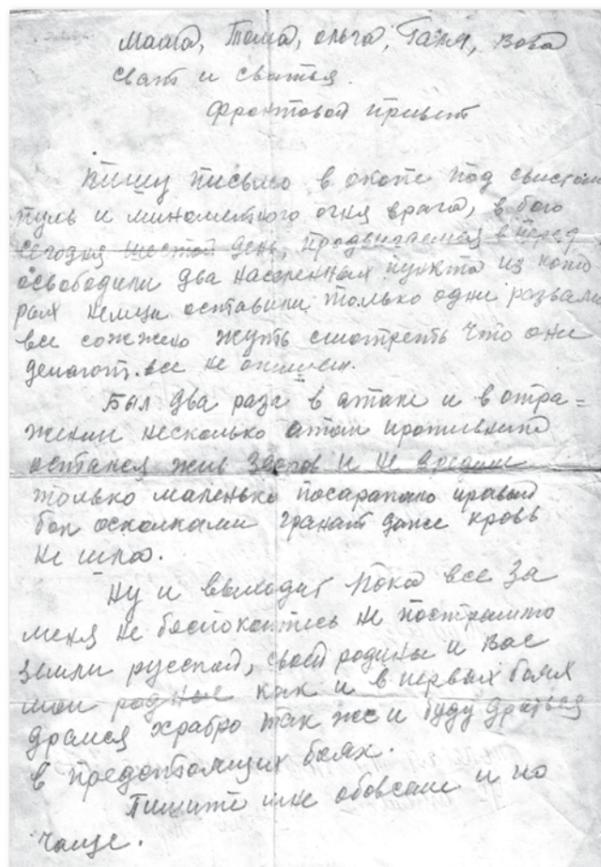 Мама, Тома, Ольга, Галя, Вова
сват и сватья.
Фронтовой привет
Пишу письмо в окопе под свистом
пуль и минометного огня врага, в бою
сегодня шестой день, продвигаемся вперед
освободили два населенных пункта из кото
рых немцы оставили только одни развали
все сожжено жуть смотреть что они
делают. все не опишеш.
Был два раза в атаке и в отра=
жении несколько атак противника
остался жив здоров и не
только маленько посарапало правый
бок осколками гранат даже кровь
не шла.
Ну и выходит пока все за
меня не беспокойтесь не
земли русской, своей родины и Вас
мои родные как и в первых боях
дрался храбро так же и буду драться
в предстоящих боях.
Пишите мне обовсем и по
чаще.